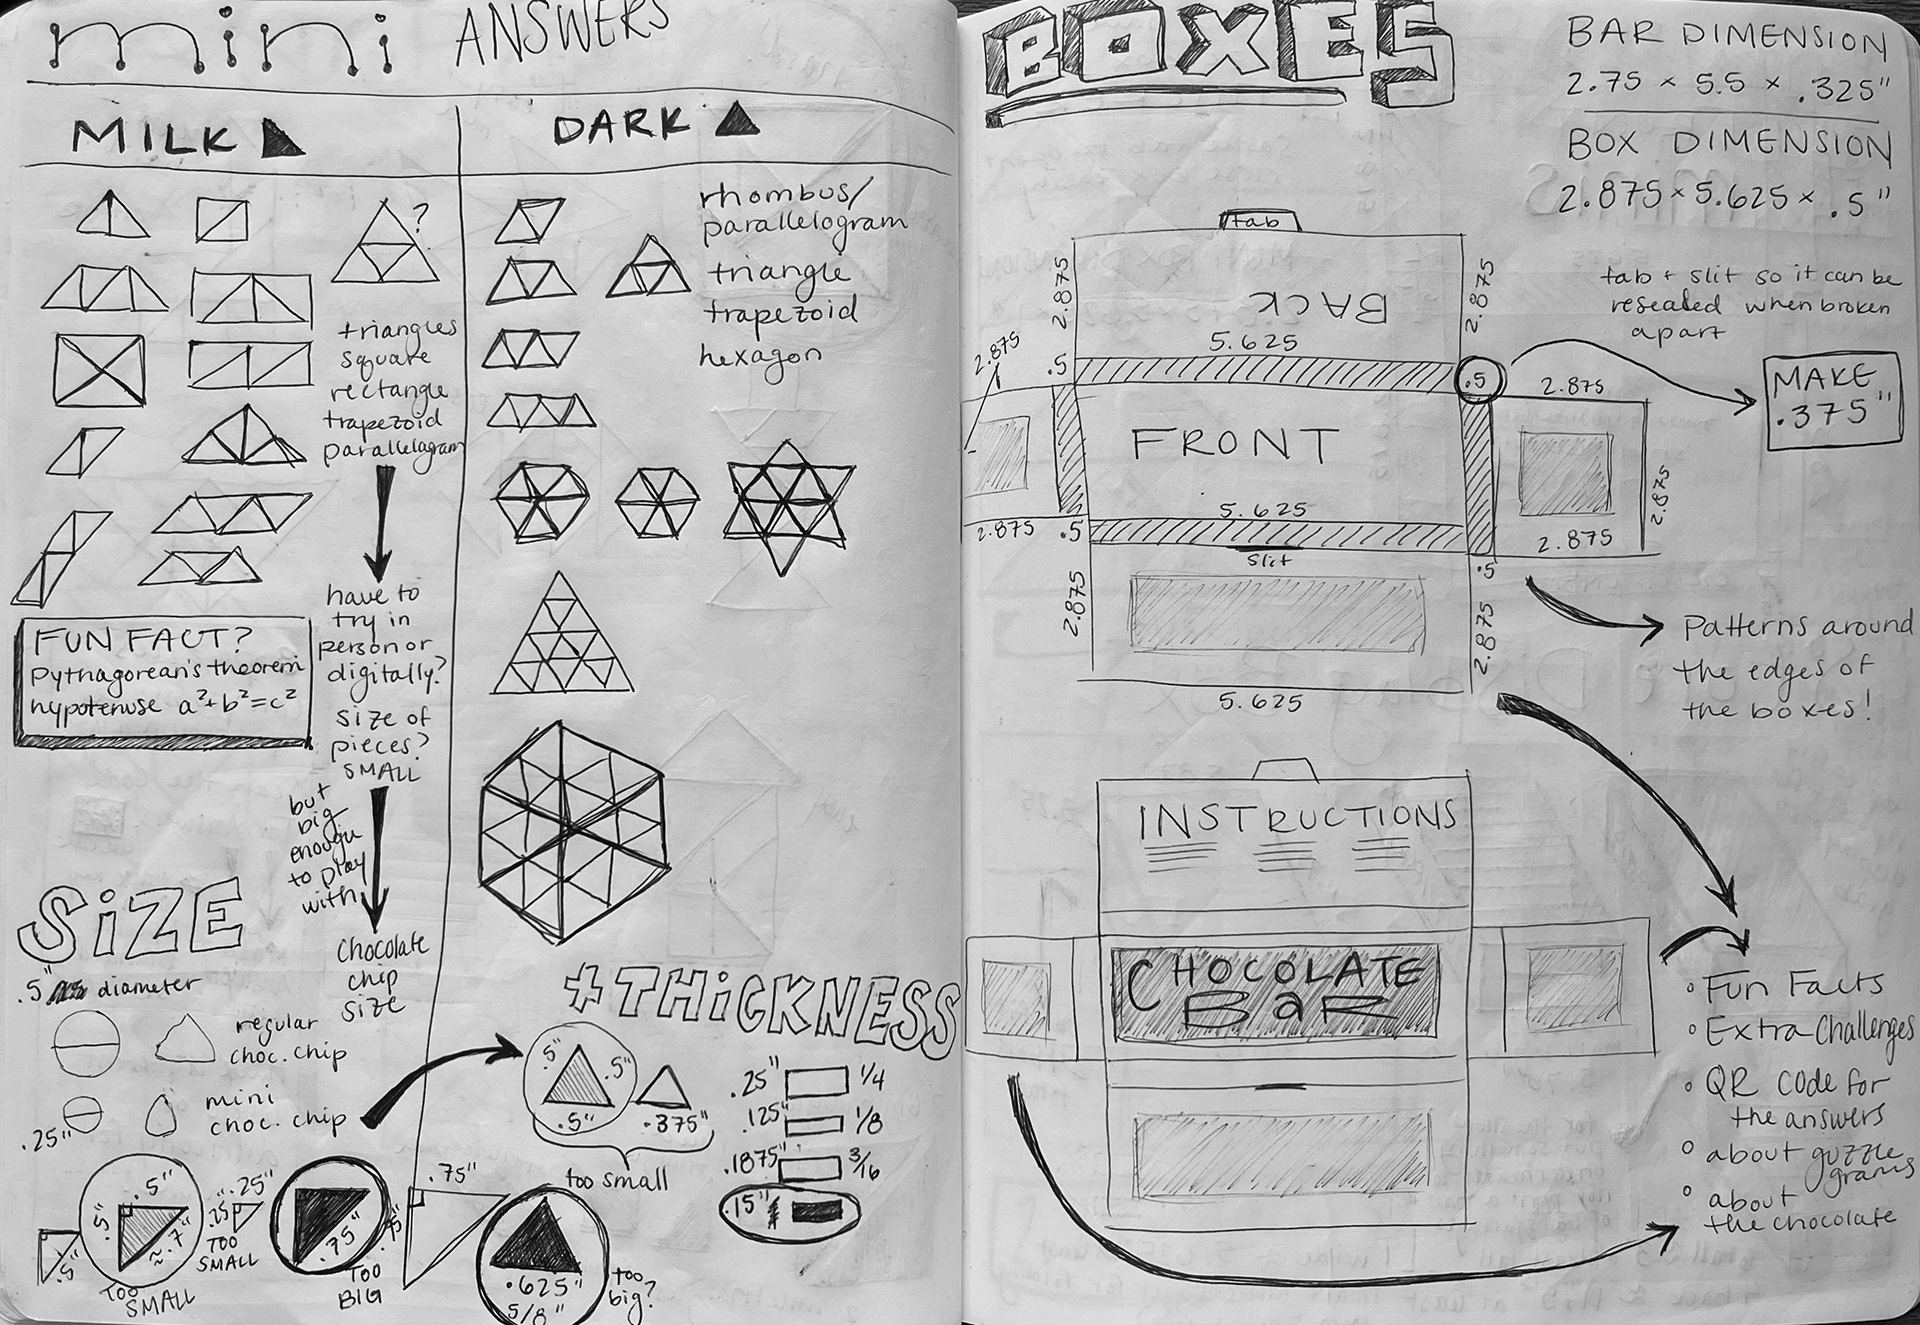 mini ANSWERS
MILK
DARK
?
triangles
square
rectangle
trapezoid
parallelagram
have to
try in
person or
digitally?
size of
pieces?
SMALL
but
big
enough
to play
with
chocolate
chip
size
FUN FACT?
pythagorean's theorem
hypotenuse a²+b²=c²
rhombus/
parallelogram
triangle
trapezoid
hexagon
SiZE
.5" diameter
regular
choc. chip
mini
choc. chip
.25"
.5"
.5"
.5"
≈.7"
TOO
SMALL
.25"
.25"
TOO
SMALL
.75"
TOO
BIG
.75"
.75"
+THiCKNESS
.5"
.5"
.5"
.375"
too small
.625"
5/8"
too
big?
.25" 1/4
.125" 1/8
.1875" 3/16
.15"
BOXES
BAR DIMENSION
2.75 × 5.5 × .325"
BOX DIMENSION
2.875 × 5.625 × .5"
tab
BACK
2.875
2.875
5.625
.5
.5
tab + slit so it can be
resealed when broken
apart
MAKE
.375"
2.875
2.875
FRONT
2.875
2.875
2.875
5.625
.5
.5
slit
2.875
2.875
5.625
Patterns around
the edges of
the boxes!
INSTRUCTIONS
CHOCOLATE
BaR
◦ Fun Facts
◦ Extra Challenges
◦ QR code for
the answers
◦ about guzzle
grams
◦ about
the chocolate